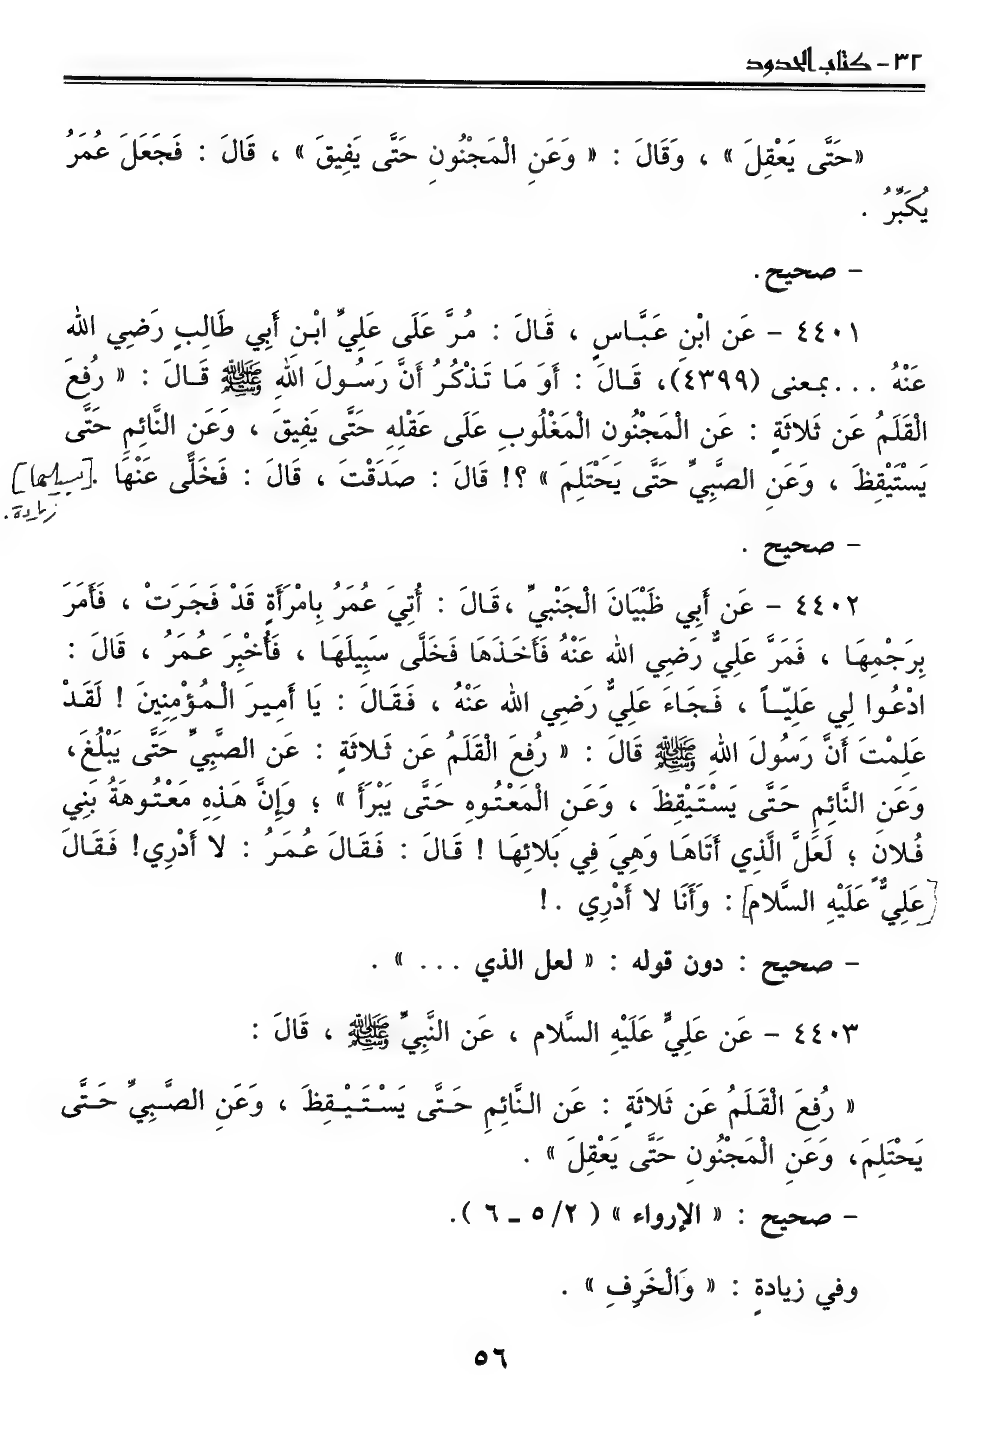 ٣٢ - كتاب الحدود
«حَتَّى يَعْقِلَ » ، وَقَالَ : « وَعَنِ الْمَجْنُونِ حَتَّى يَفِيقَ » ، قَالَ : فَجَعَلَ عُمَرُ
يُكَبِّرُ .
- صحيح.
٤٤٠١ - عَن ابْنِ عَبَّاسٍ ، قَالَ : مُرَّ عَلَى عَلِيِّ ابْنِ أَبِي طَالِبٍ رَضِي الله
عَنْهُ ... بمعنى (٤٣٩٩)، قَالَ : أَوَ مَا تَذْكُرُ أَنَّ رَسُولَ اللهِ ﷺ قَالَ : « رُفِعَ
الْقَلَمُ عَن ثَلاثَةٍ : عَن الْمَجْنُونِ الْمَغْلُوبِ عَلَى عَقْلِهِ حَتَّى يَفِيقَ ، وَعَن النَّائِمِ حَتَّى
يَسْتَيْقِظَ ، وَعَنِ الصَّبِيِّ حَتَّى يَحْتَلِمَ » ؟! قَالَ : صَدَقْتَ ، قَالَ : فَخَلَّى عَنْهَا .[سبيلها]
زيادة.
- صحيح .
٤٤٠٢ - عَن أَبِي ظَبْيَانَ الْجَنْبِيِّ ،قَالَ : أُتِيَ عُمَرُ بِامْرَأَةٍ قَدْ فَجَرَتْ ، فَأَمَرَ
بِرَجْمِهَا ، فَمَرَّ عَلِيٌّ رَضِي الله عَنْهُ فَأَخَذَهَا فَخَلَّى سَبِيلَهَا ، فَأُخْبِرَ عُمَرُ ، قَالَ :
ادْعُوا لِي عَلِيّاً ، فَجَاءَ عَلِيٌّ رَضِي الله عَنْهُ ، فَقَالَ : يَا أَمِيرَ الْمُؤْمِنِينَ ! لَقَدْ
عَلِمْتَ أَنَّ رَسُولَ اللهِ ﷺ قَالَ : « رُفِعَ الْقَلَمُ عَن ثَلاثَةٍ : عَن الصَّبِيِّ حَتَّى يَبْلُغَ،
وَعَن النَّائِمِ حَتَّى يَسْتَيْقِظَ ، وَعَنِ الْمَعْتُوهِ حَتَّى يَبْرَأَ » ؛ وَإِنَّ هَذِهِ مَعْتُوهَةُ بَنِي
فُلانٍ ؛ لَعَلَّ الَّذِي أَتَاهَا وَهِيَ فِي بَلائِهَا ! قَالَ : فَقَالَ عُمَرُ : لا أَدْرِي! فَقَالَ
[عَلِيٌّ عَلَيْهِ السَّلام] : وَأَنَا لا أَدْرِي .!
- صحيح : دون قوله : « لعل الذي ... » .
٤٤٠٣ - عَن عَلِيٍّ عَلَيْهِ السَّلام ، عَن النَّبِيِّ ﷺ ، قَالَ :
« رُفِعَ الْقَلَمُ عَن ثَلاثَةٍ : عَن النَّائِمِ حَتَّى يَسْتَيْقِظَ ، وَعَنِ الصَّبِيِّ حَتَّى
يَحْتَلِمَ، وَعَنِ الْمَجْنُونِ حَتَّى يَعْقِلَ » .
- صحيح : « الإرواء » ( ٥/٢ ـ ٦ ).
وفي زيادةٍ : « وَالْخَرِفِ » .
٥٦